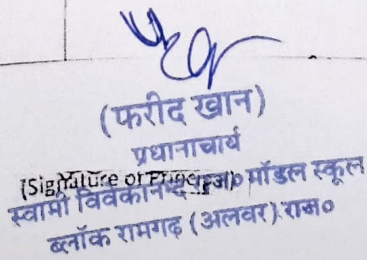 (फरीद खान)
प्रधानाचार्य
(Signature of Principal)
स्वामी विवेकानन्द राज० मॉडल स्कूल
ब्लॉक रामगढ़ (अलवर) राज०